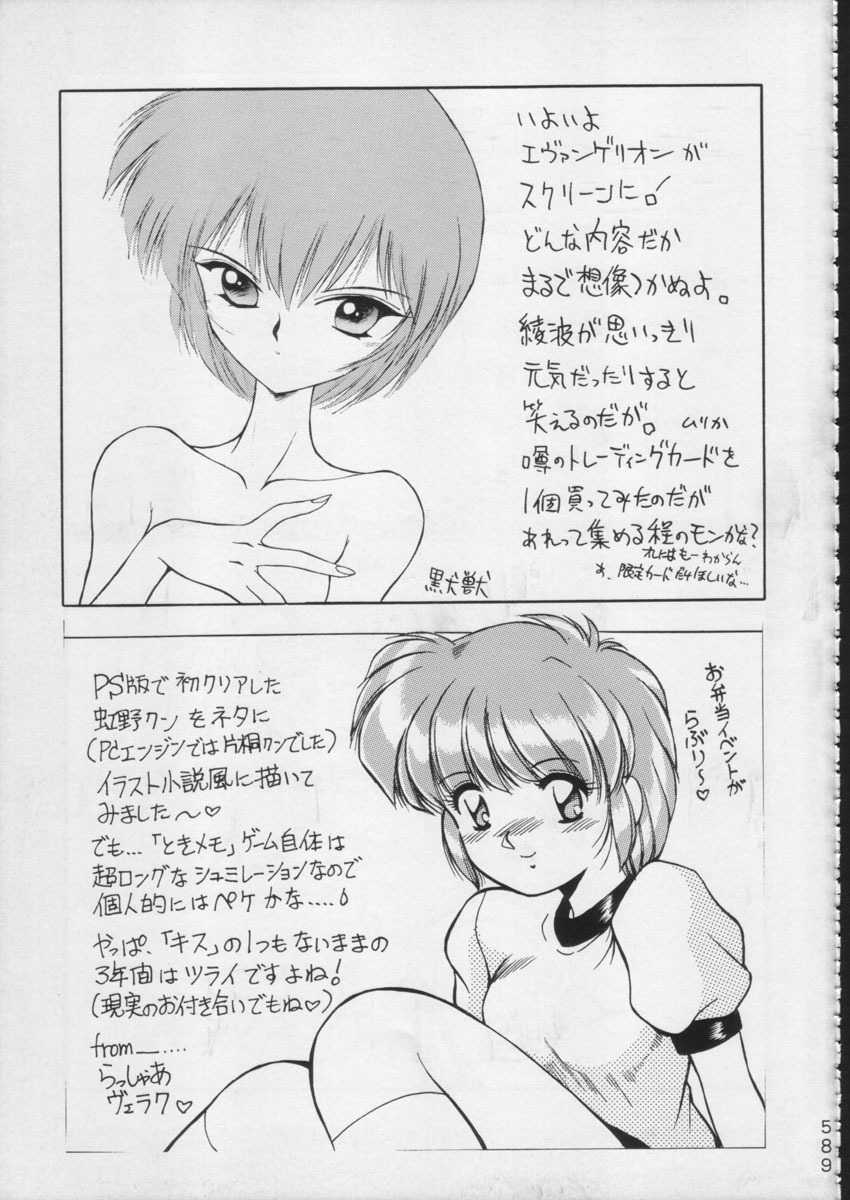 いよいよ
エヴァンゲリオンが
スクリーンに!
どんな内容だか
まるで想像つかぬよ。
綾波が思いっきり
元気だったりすると
笑えるのだが。 ムリか
噂のトレーディングカードを
1個買ってみたのだが
あれって集める程のモンかな?
オレにはもーわからん
あ、限定カードだけほしいな…
黒犬獣
PS版で初クリアした
虹野クンをネタに
(PCエンジンでは片桐クンでした)
イラスト小説風に描いて
みました〜♡
でも…「ときメモ」ゲーム自体は
超ロングなシュミレーションなので
個人的にはペケかな.....
やっぱ、「キス」の1つもないままの
3年間はツライですよね!
(現実のお付き合いでもね♡)
from_....
らっしゃあ
ヴェラク♡
お弁当イベントが
らぶり〜♡
589